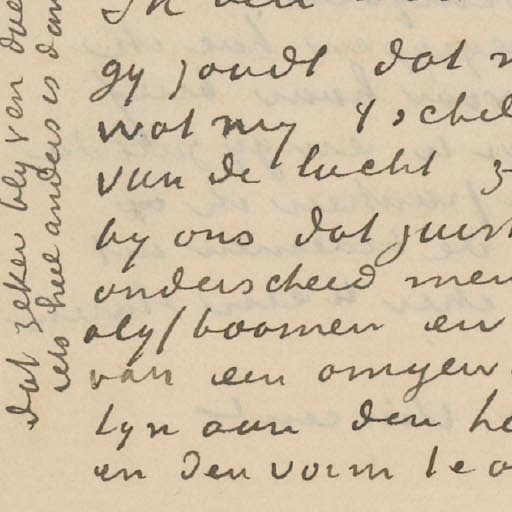 gy zoudt dat
wat my 't schel
van de lucht
by ons dat juist
onderscheid men
olyfboomen en
van een omgev
lyn aan den ho
en den vorm
dat zeker bly van
iets heel anders is dan